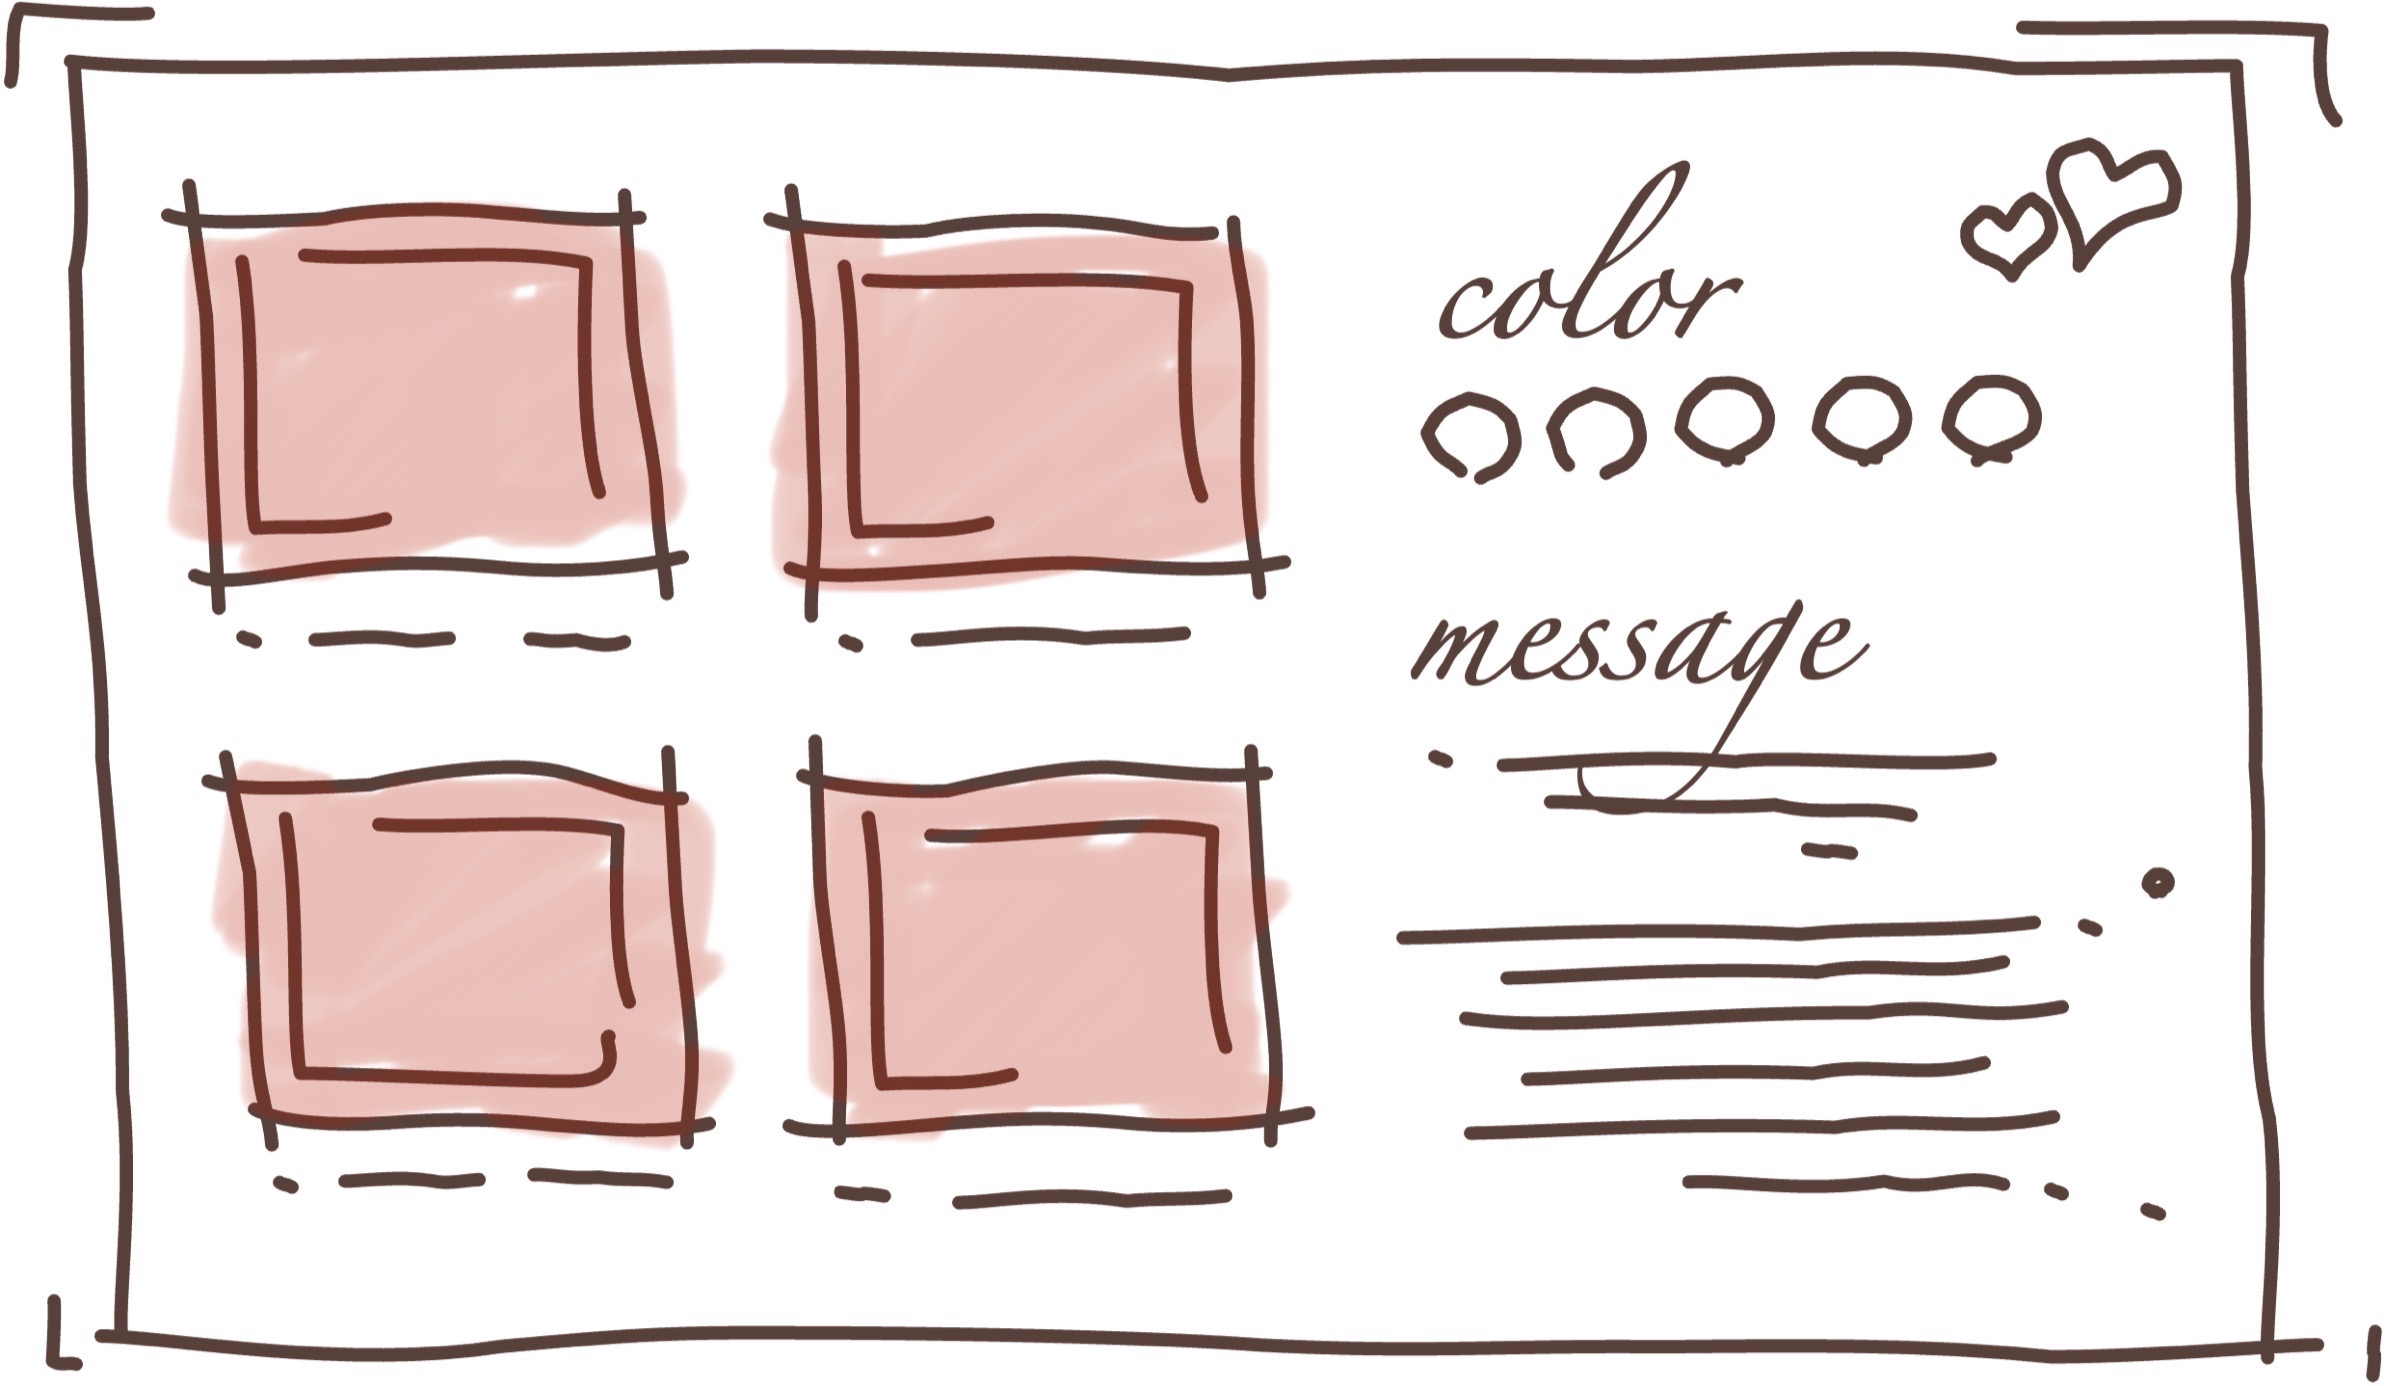 color
message